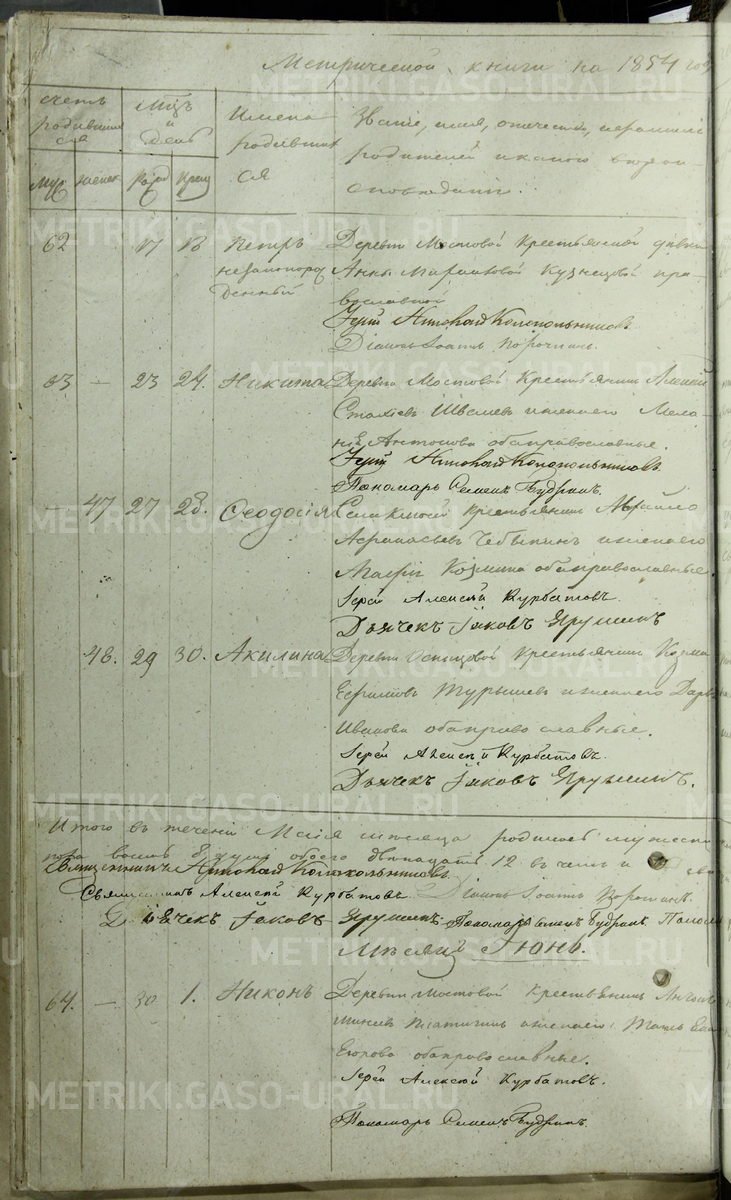 Метрической книги на 1854 год
счетъ родившихся
Мцъ и день
Имена родившихся
Званіе, имя, отчество, и фамилія
родителей и какого вѣроисповѣданія.
муж женск рожд крещ
62 17 18 Петръ незаконорожденный
Деревни Мостовой крестьянской дѣвки
Анны Кузнецовой православной
Іерей Николай Колокольниковъ
Діаконъ Іоаннъ
63 — 23 24. Никита
Деревни Мостовой крестьянинъ Алексѣй
Швалевъ и жена его
Антонова оба православные.
Іерей Николай Колокольниковъ
Пономарь Семенъ Будринъ.
— 47 27 28. Ѳеодосія
Села крестьянинъ
Афанасьевъ Чебыкинъ и жена его
Козмина оба православные.
Іерей Алексѣй Курбатовъ
Дьячекъ Іаковъ Ярушинъ
48. 29 30. Акилина
Деревни крестьянинъ Козма
Ефимовъ Турышевъ и жена его Дарья
Иванова оба православные.
Іерей Алексѣй Курбатовъ.
Дьячекъ Іаковъ Ярушинъ.
Итого въ теченіи Мая мѣсяца родилось мужеска
пола восемь обоего двенадцать 12
Священникъ Николай Колокольниковъ
Священникъ Алексѣй Курбатовъ. Діаконъ Іоаннъ
Дьячекъ Іаковъ Ярушинъ Пономарь Семенъ Будринъ.
Мѣсяцъ Іюнь.
64. — 30 1. Никонъ
Деревни Мостовой крестьянинъ
и жена его
Егорова оба православные.
Іерей Алексѣй Курбатовъ.
Пономарь Семенъ Будринъ.
METRIKI.GASO-URAL.RU